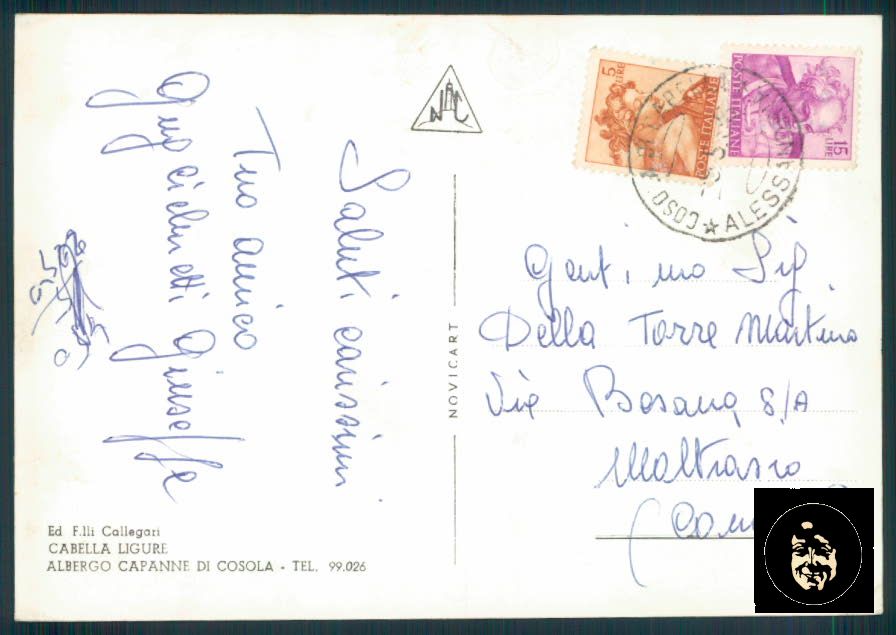 Saluti carissimi
Tuo amico
Giuseppe
Gent.imo Sig
Della Torre Martino
Via Bosana, 8/A
Moltrasio
(Com
NOVICART
Ed F.lli Callegari
CABELLA LIGURE
ALBERGO CAPANNE DI COSOLA - TEL. 99.026
5 LIRE
POSTE ITALIANE
POSTE ITALIANE
15 LIRE
ALESS